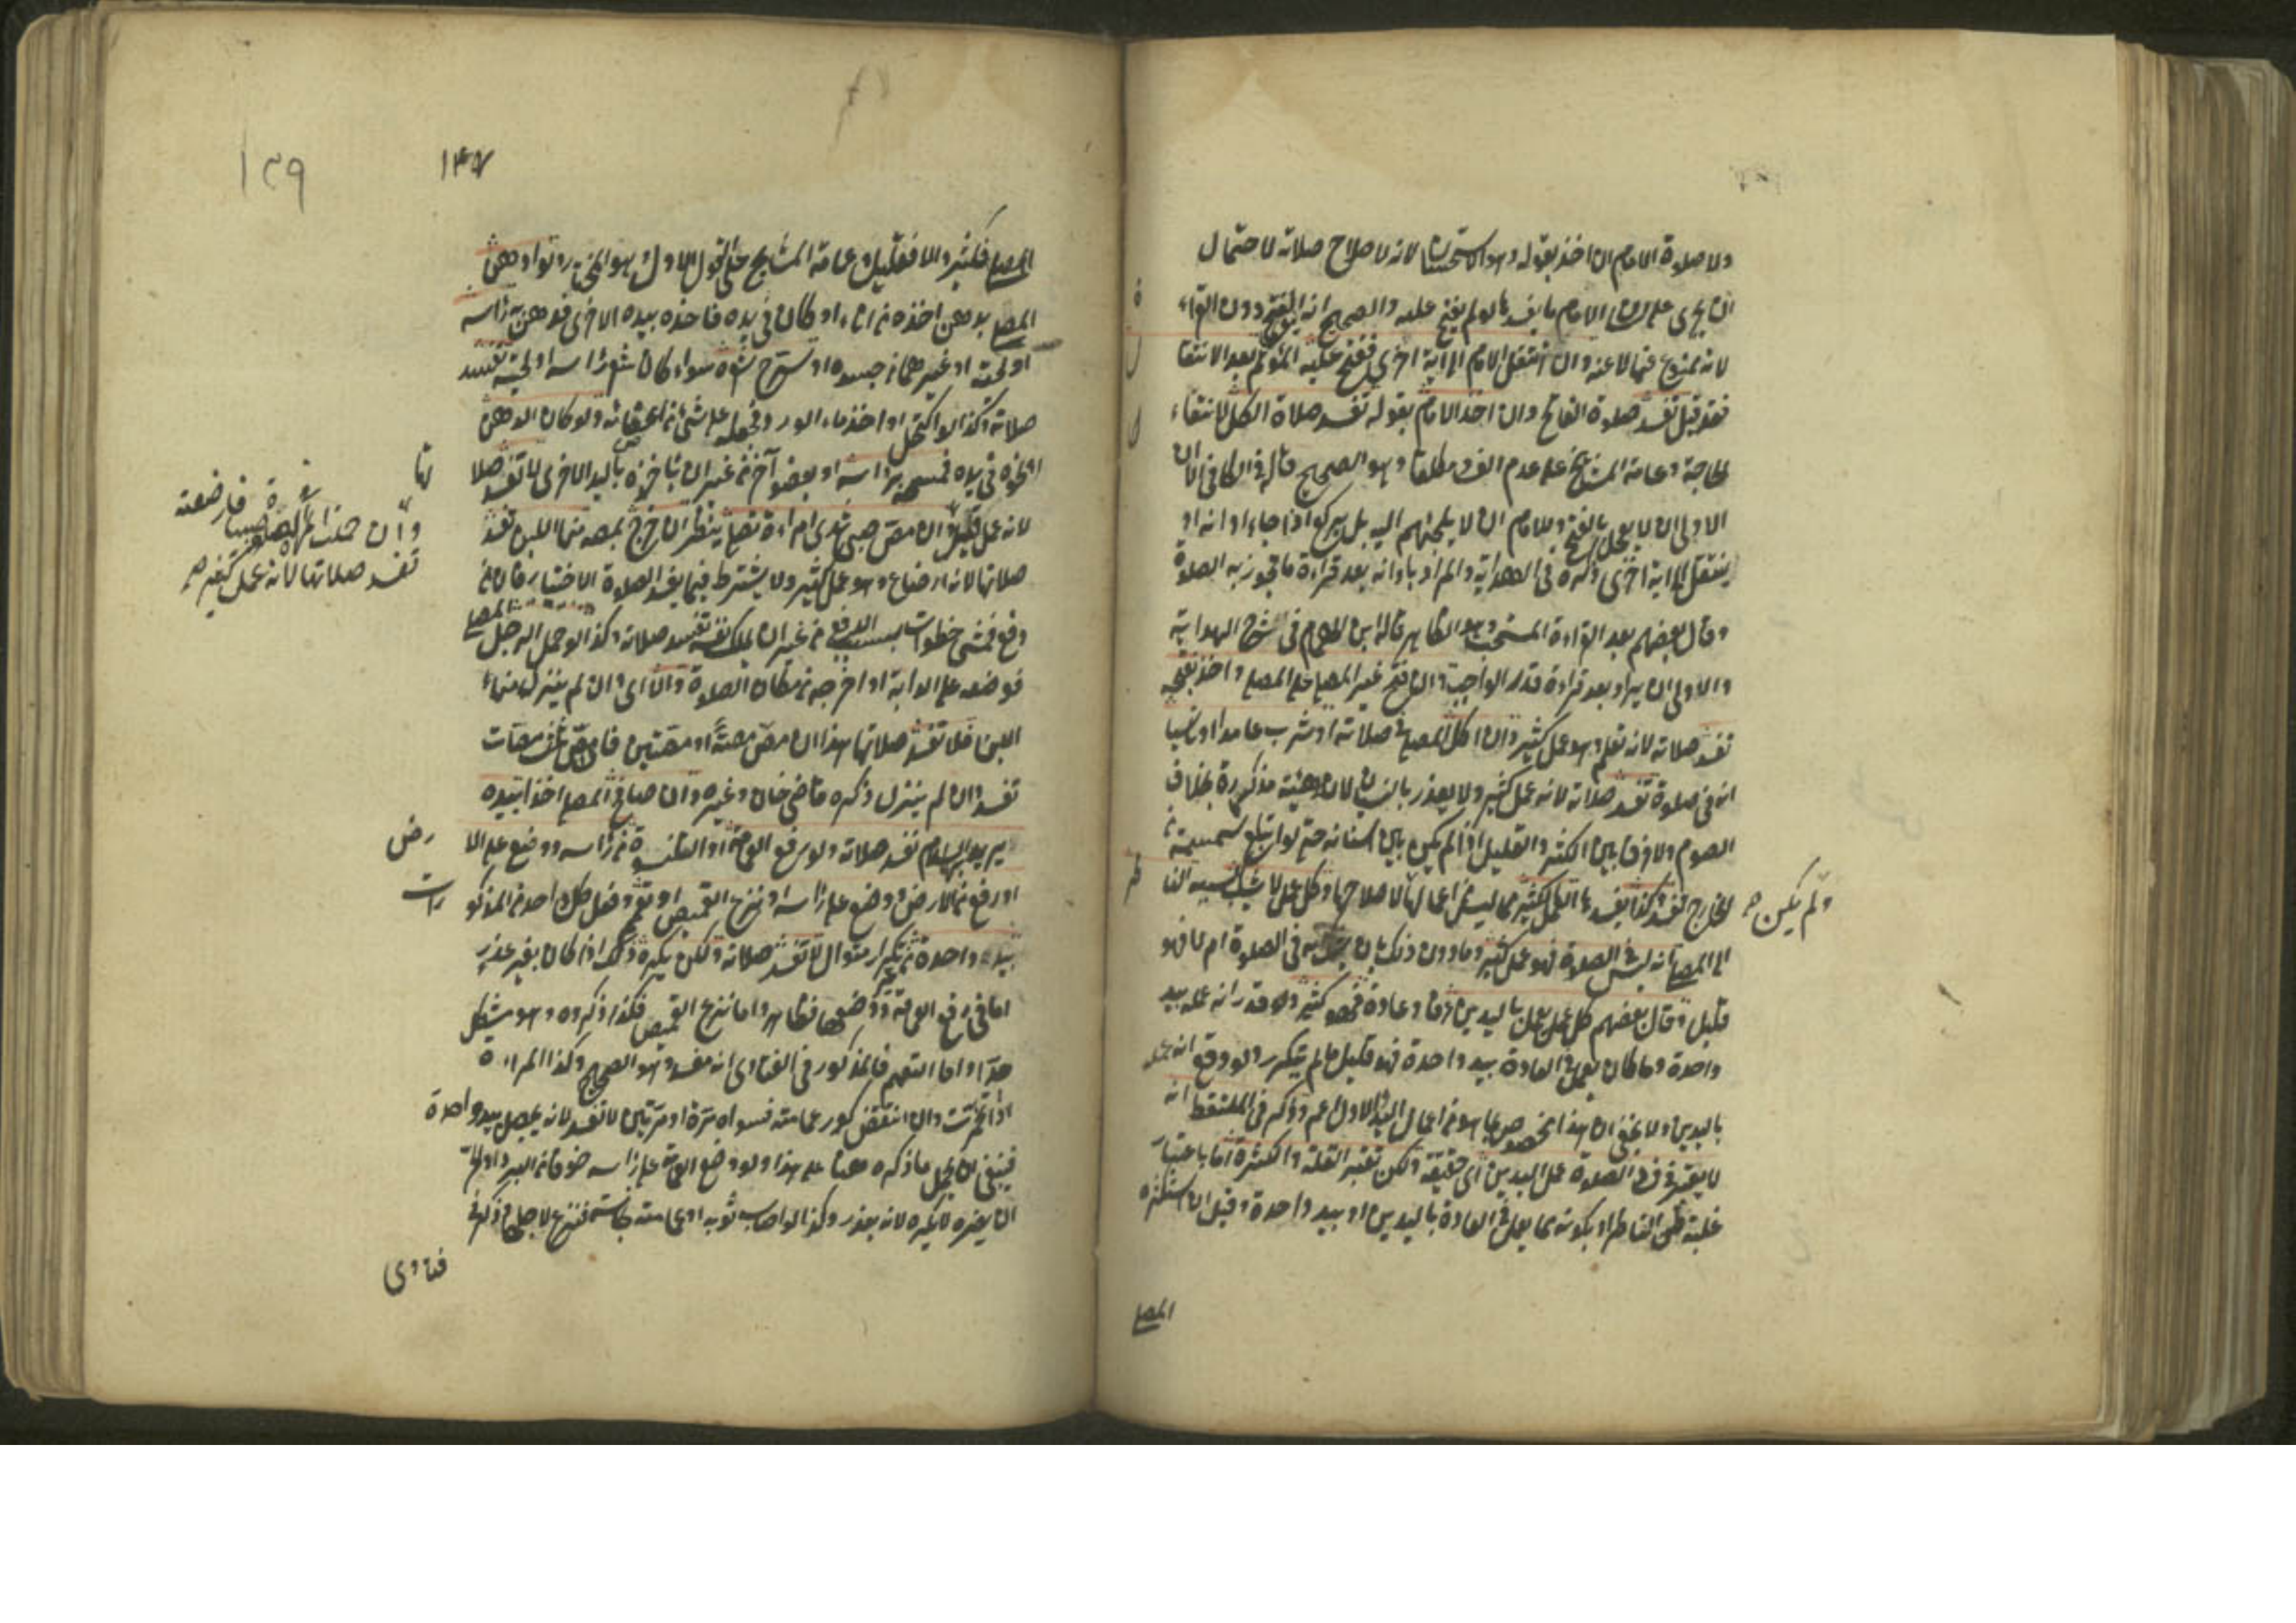 ولا صلوة الامام ان اخذ بقوله وهو الاستحسان لانه لاصلاح صلاته لاحتمال
ان يجرى على لسان الامام ما يفسدها لو لم يفتح عليه والصحيح انه ينوى الفتح دون القراءة
لانه ممنوع عنها لا عنه وان انتقل الامام الى اية اخرى ففتح عليه المؤتم بعد الانتقال
فقد قيل تفسد صلوة الفاتح وان اخذ الامام بقوله تفسد صلاة الكل لانتفاء
الحاجة وعامة المشايخ على عدم الفساد مطلقا وهو الصحيح قاله فى الكافى الا ان
الاولى ان لا يعجل بالفتح وللامام ان لا يلجئهم اليه بل يركع اذا جاء اوانه او
ينتقل الى اية اخرى ذكره فى الهداية والمراد باوانه بعد قراءة ما تجوز به الصلوة
وقال بعضهم بعد القراءة المستحبة وهو الظاهر قاله ابن الهمام فى شرح الهداية
والاولى ان يراد بعد قراءة قدر الواجب وان فتح غير المصلى على المصلى واخذ بفتحه
تفسد صلاته لانه تعلم وهو عمل كثير وان اكل المصلى فى صلاته او شرب عامدا او ناسيا
انه فى صلوة تفسد صلاته لانه عمل كثير ولا يعذر بالنسيان لان هيئته مذكرة بخلاف
الصوم ولا فرق بين الكثير والقليل اذا لم يكن بين اسنانه حتى لو ابتلع سمسمة من
الخارج تفسد وكذا يفسدها العمل الكثير مما ليس من اعمالها ولم يكن لاصلاحها وكل عمل لا يشك بسببه الناظر
الى المصلى انه ليس فى الصلوة فهو عمل كثير وما دون ذلك بان يشتبه فى الصلوة ام لا فهو
قليل وقال بعضهم كل عمل يعمل باليدين عرفا وعادة فهو كثير ولو قدر انه عمله بيد
واحدة وما كان يعمل فى العادة بيد واحدة فهو قليل ما لم يتكرر ولو وقع انه عمله
باليدين ولا يخفى ان هذا مخصوص بما هو من اعمال اليد والاول اعم وذكر فى الملتقط انه
لا يعتبر فى فساد الصلوة عمل اليدين اى حقيقة ولكن تعتبر القلة والكثرة اما باعتبار
غلبة ظن الناظر او بكونه مما يعمل فى العادة باليدين او بيد واحدة وقيل ان استكثره
المصلى
١٣٩
١٤٧
المصلى فكثير والا فقليل وعامة المشايخ على القول الاول وهو المختار ولو ادهن
المصلى بدهن اخذه من اناء او كان فى يده فاخذه بيده الاخرى فدهن به رأسه
او لحيته او غيرهما من جسده او سرح شعره سواء كان شعر رأسه او لحيته تفسد
صلاته وكذا لو اكتحل او اخذ ماء الورد وجعله على شئ من اعضائه ولو كان الدهن
ونحوه فى يده فمسحه برأسه او بعضو آخر من غير ان يأخذه باليد الاخرى لا تفسد صلاته
لانه عمل قليل وان مص صبى ثدى امراءة تصلى ينظر ان خرج بمصه منها اللبن تفسد
وان حملت المرأة صبيا فارضعته
تفسد صلاتها لانه عمل كثير صح
صلاتها لانه ارضاع وهو عمل كثير ولا يشترط فيما يفسد الصلوة الاختيار فان من
دفع فمشى خطوات بسبب الدفع من غير ان يملك نفسه تفسد صلاته وكذا لو حمل الرجل المصلى
فوضعه على الدابة او اخرجه من مكان الصلوة والا اى وان لم ينزل منها
اللبن فلا تفسد صلاتها هذا ان مص مصة او مصتين فان مص ثلاث مصات
تفسد وان لم ينزل ذكره قاضى خان وغيره وان صافح المصلى احدا بيده
يريد السلام تفسد صلاته ولو رفع العمامة او القلنسوة من رأسه ووضع على الارض
او رفع من الارض ووضع على رأسه او نزع القميص او تعمم وفعل كل واحد من المذكورات
بيد واحدة من غير تكرار متوال لا تفسد صلاته ولكن يكره ذلك اذا كان بغير عذر
اما فى رفع العمامة ووضعها فظاهر واما نزع القميص فكذا ذكروه وهو مشكل
جدا واما التعمم فالمذكور فى الفتاوى انه مفسد وهو الصحيح وكذا المراءة
اذا تخمرت وان انتقض كور عمامته فسواه مرة او مرتين لا تفسد لانه يحصل بيد واحدة
فينبغى ان يحمل ما ذكره هنا على هذا ولو وضع العمامة على رأسه خوفا من البرد او الحر
ان يضره لا يكره لانه بعذر وكذا لو اصاب ثوبه او عمامته نجاسة فنزع لاجلها ذكره فى
فتاوى